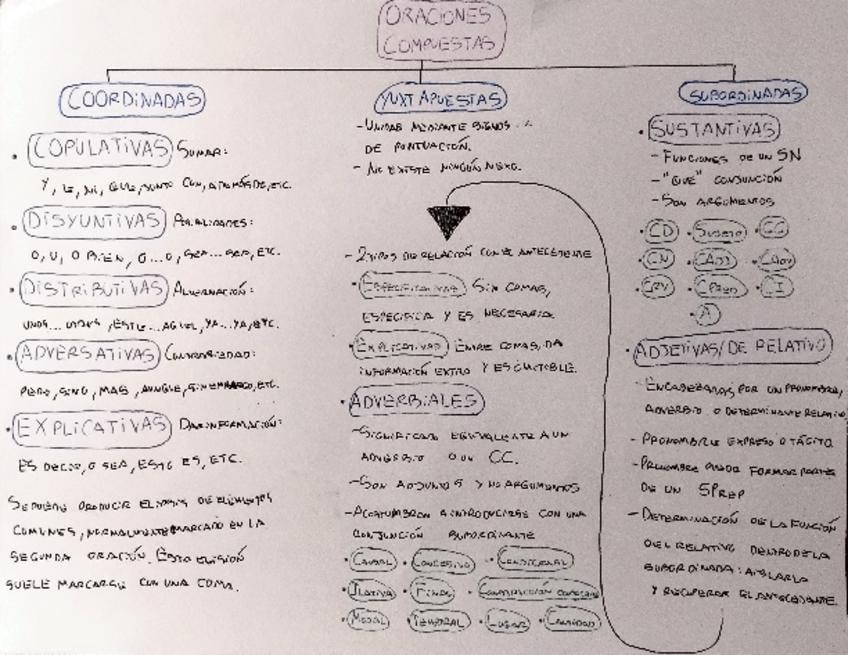 ORACIONES
COMPUESTAS
COORDINADAS
• COPULATIVAS SUMAR:
Y, E, NI, QUE, JUNTO CON, ADEMÁS DE, ETC.
• DISYUNTIVAS
O, U, O BIEN, O...O, SEA...SEA, ETC.
• DISTRIBUTIVAS ALTERNACIÓN:
UNOS...OTROS, ESTE...AQUEL, YA...YA, ETC.
• ADVERSATIVAS CONTRARIEDAD:
PERO, SINO, MAS, AUNQUE, SIN EMBARGO, ETC.
• EXPLICATIVAS DAN INFORMACIÓN:
ES DECIR, O SEA, ESTO ES, ETC.
SE PUEDE PRODUCIR ELIPSIS DE ELEMENTOS
COMUNES, NORMALMENTE MARCADO EN LA
SEGUNDA ORACIÓN. ESTA ELISIÓN
SUELE MARCARSE CON UNA COMA.
YUXTAPUESTAS
- UNIDAS MEDIANTE SIGNOS
DE PUNTUACIÓN.
- NO EXISTE NINGÚN NEXO.
- 2 TIPOS DE RELACIÓN CON EL ANTECEDENTE
• ESPECIFICATIVAS SIN COMAS,
ESPECIFICA Y ES NECESARIA.
• EXPLICATIVAS ENTRE COMAS, DA
INFORMACIÓN EXTRA Y ES QUITABLE.
• ADVERBIALES
- SIGNIFICADO EQUIVALENTE A UN
ADVERBIO O UN CC.
- SON ADJUNTOS Y NO ARGUMENTOS
- ACOSTUMBRAN A INTRODUCIRSE CON UNA
CONJUNCIÓN SUBORDINANTE
• CAUSAL • CONCESIVA • CONDICIONAL
• ILATIVA • FINAL • CONSTRUCCIÓN
• MODAL • TEMPORAL • LUGAR • CANTIDAD
SUBORDINADAS
• SUSTANTIVAS
- FUNCIONES DE UN SN
- "QUE" CONJUNCIÓN
- SON ARGUMENTOS
• CD • SUJETO
• CN • CADJ • CADV
• CRV • CPRED • CI
• A
• ADJETIVAS/DE RELATIVO
- ENCABEZADAS POR UN PRONOMBRE,
ADVERBIO O DETERMINANTE RELATIVO
- PRONOMBRE EXPRESO O TÁCITO
- PRONOMBRE PUEDE FORMAR PARTE
DE UN SPREP
- DETERMINACIÓN DE LA FUNCIÓN
DEL RELATIVO DENTRO DE LA
SUBORDINADA: AISLARLA
Y RECUPERAR EL ANTECEDENTE.